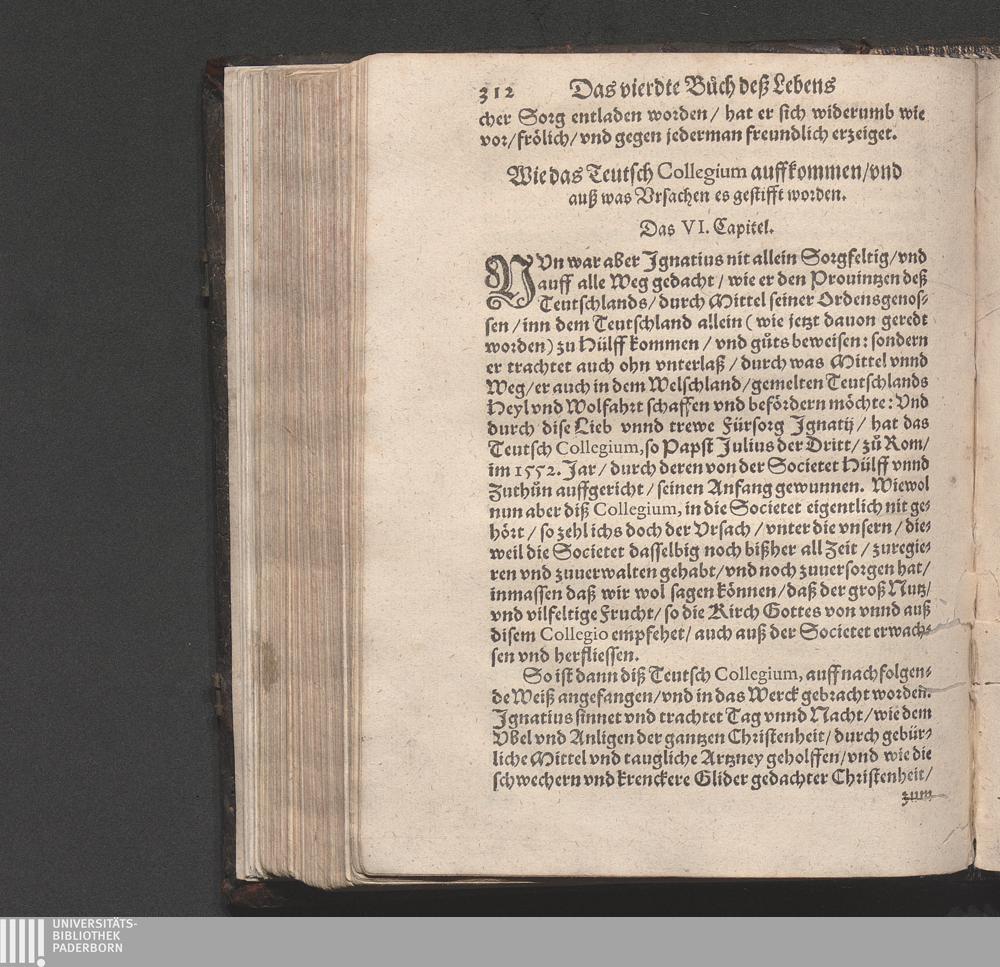 312 Das vierdte Bůch deß Lebens
cher Sorg entladen worden / hat er sich widerumb wie
vor / frölich / vnd gegen jederman freundlich erzeiget.
Wie das Teutsch Collegium auffkommen / vnd
auß was Vrsachen es gestifft worden.
Das VI. Capitel.
NVn war aber Ignatius nit allein Sorgfeltig / vnd
auff alle Weg gedacht / wie er den Prouintzen deß
Teutschlands / durch Mittel seiner Ordensgenos-
sen / inn dem Teutschland allein ( wie jetzt dauon geredt
worden) zu Hülff kommen / vnd gůts beweisen: sondern
er trachtet auch ohn vnterlaß / durch was Mittel vnnd
Weg / er auch in dem Welschland / gemelten Teutschlands
Heyl vnd Wolfahrt schaffen vnd befördern möchte: Vnd
durch dise Lieb vnnd trewe Fürsorg Ignatij / hat das
Teutsch Collegium, so Papst Julius der Dritt / zů Rom /
im 1552. Jar / durch deren von der Societet Hülff vnnd
Zuthůn auffgericht / seinen Anfang gewunnen. Wiewol
nun aber diß Collegium, in die Societet eigentlich nit ge-
hört / so zehl ichs doch der Vrsach / vnter die vnsern / die-
weil die Societet dasselbig noch bißher all Zeit / zuregie-
ren vnd zuuerwalten gehabt / vnd noch zuuersorgen hat /
inmassen daß wir wol sagen können / daß der groß Nutz /
vnd vilfeltige Frucht / so die Kirch Gottes von vnnd auß
disem Collegio empfehet / auch auß der Societet erwach-
sen vnd herfliessen.
So ist dann diß Teutsch Collegium, auff nachfolgen-
de Weiß angefangen / vnd in das Werck gebracht worden.
Ignatius sinnet vnd trachtet Tag vnnd Nacht / wie dem
Vbel vnd Anligen der gantzen Christenheit / durch gebür-
liche Mittel vnd taugliche Artzney geholffen / vnd wie die
schwechern vnd krenckere Glider gedachter Christenheit /
zum
UNIVERSITÄTS-
BIBLIOTHEK
PADERBORN